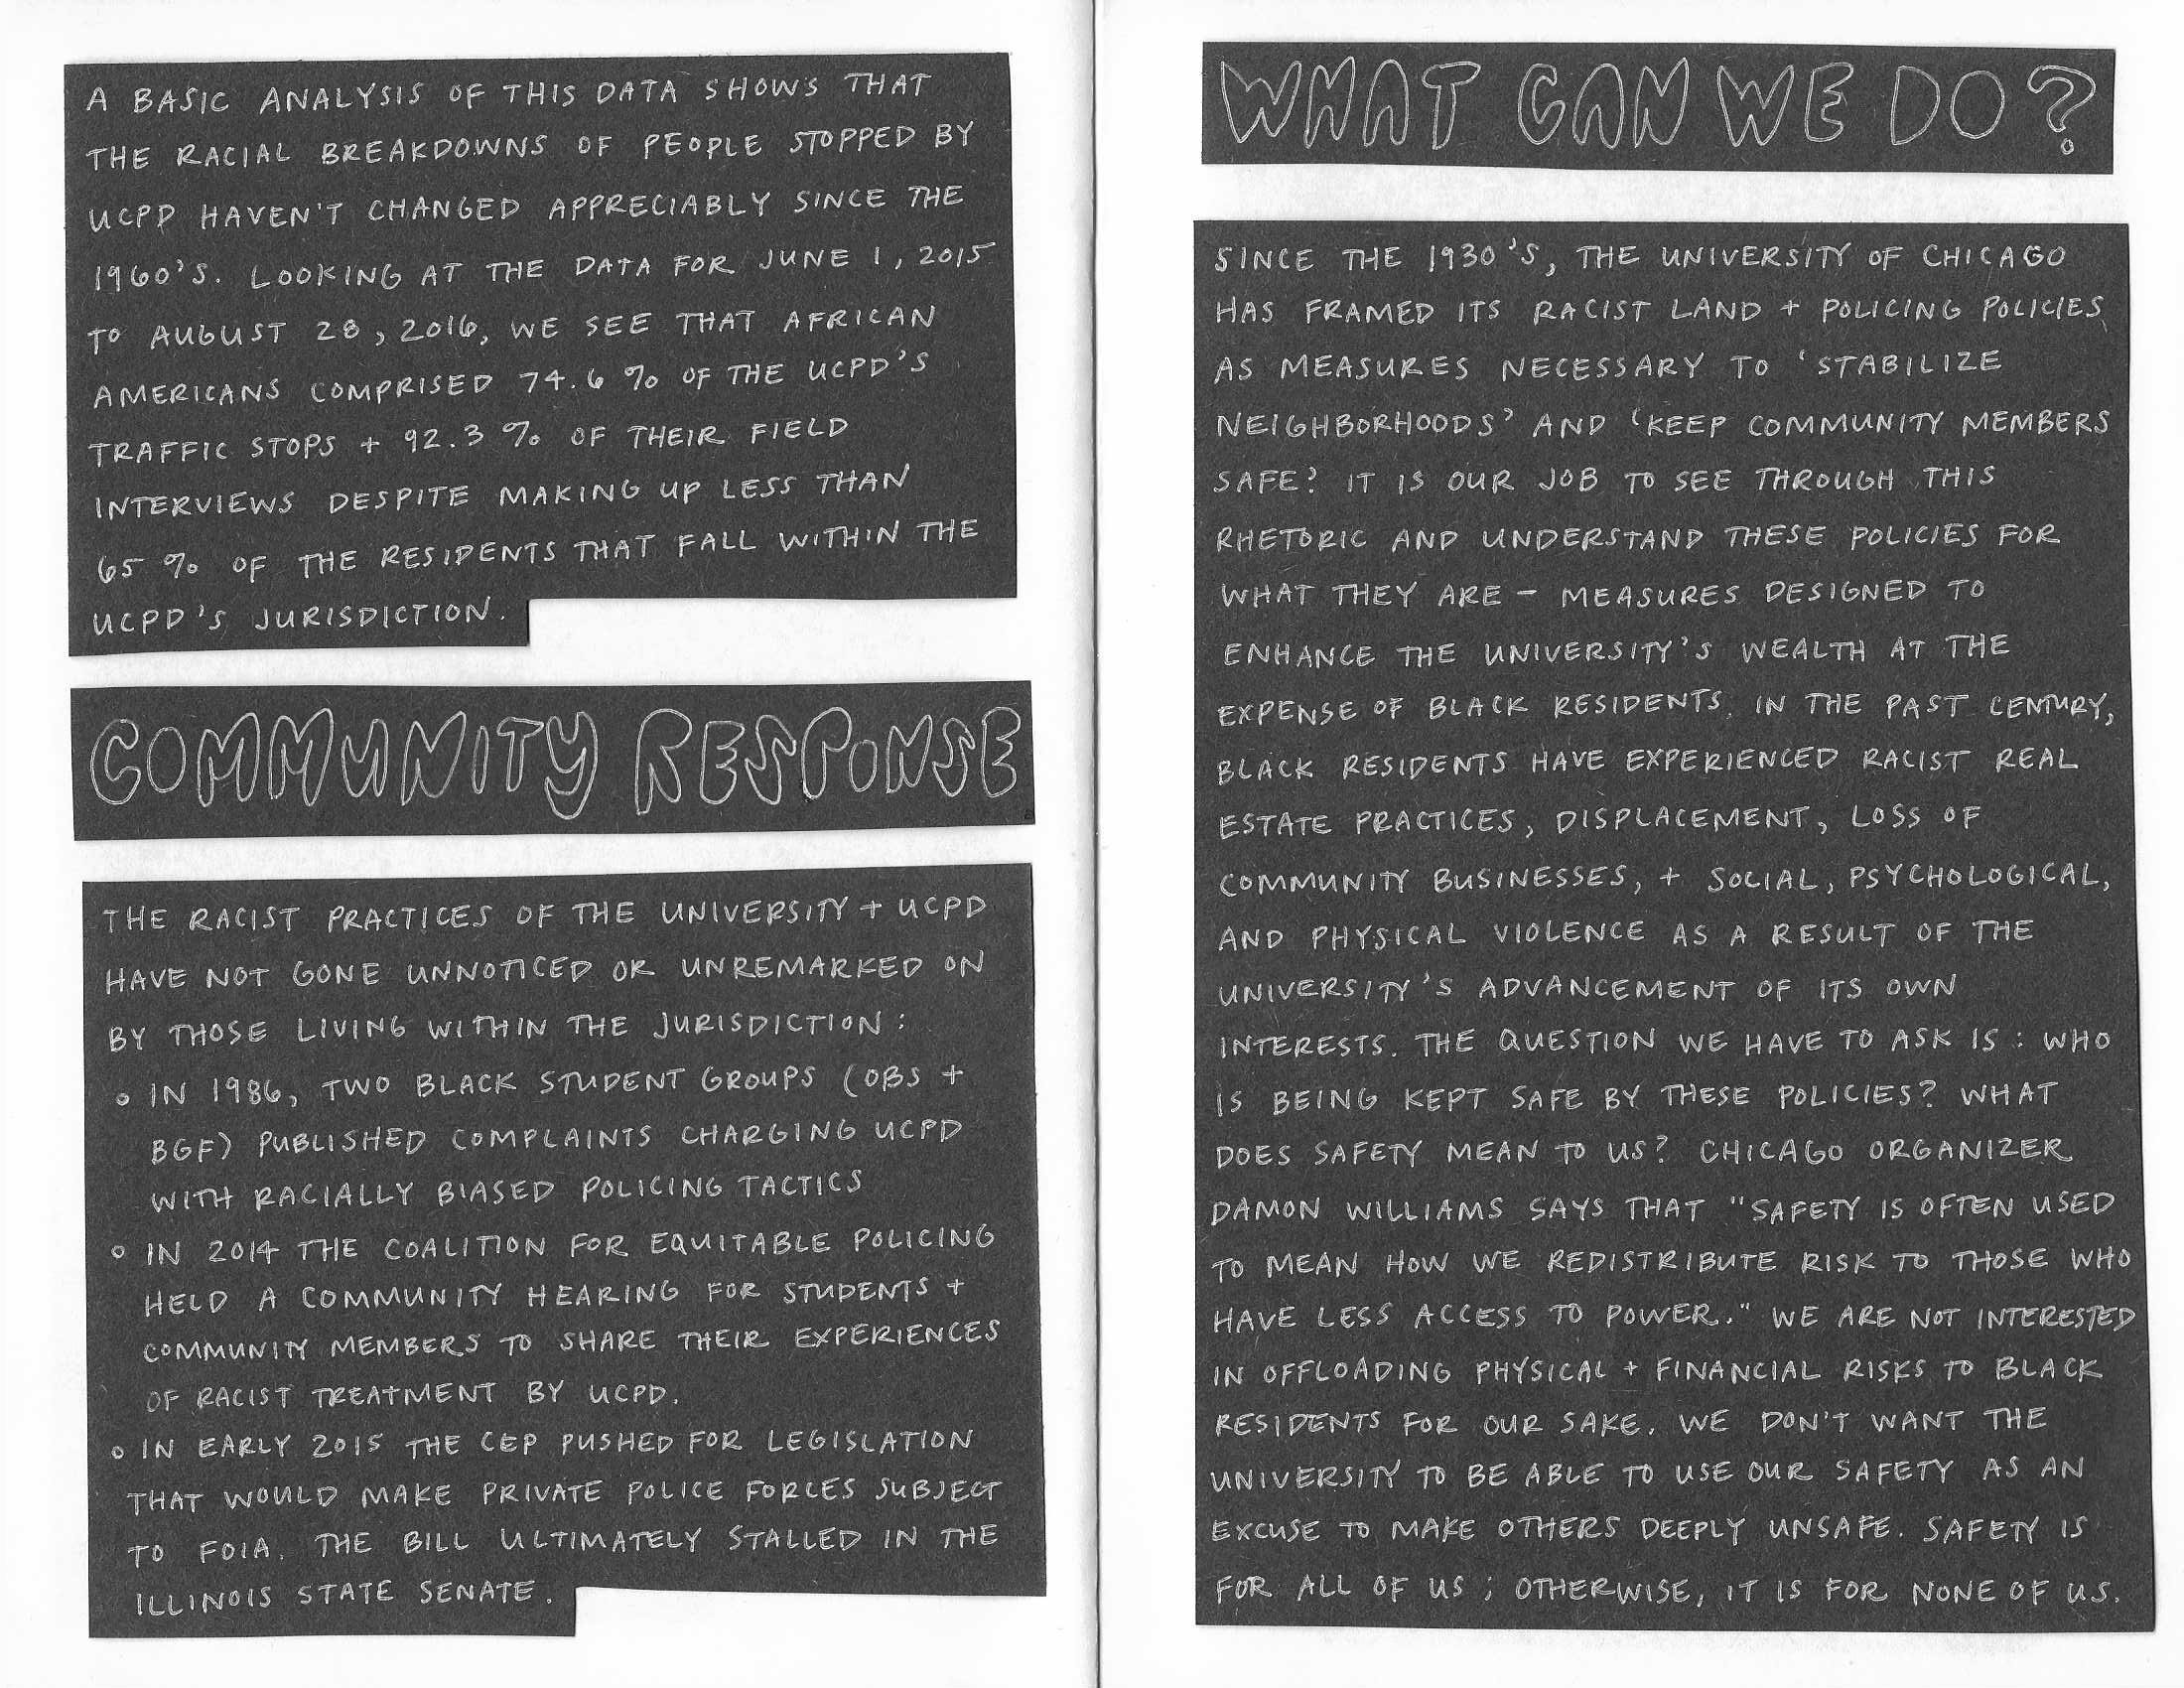 A BASIC ANALYSIS OF THIS DATA SHOWS THAT
THE RACIAL BREAKDOWNS OF PEOPLE STOPPED BY
UCPD HAVEN'T CHANGED APPRECIABLY SINCE THE
1960'S. LOOKING AT THE DATA FOR JUNE 1, 2015
TO AUGUST 28, 2016, WE SEE THAT AFRICAN
AMERICANS COMPRISED 74.6 % OF THE UCPD'S
TRAFFIC STOPS + 92.3 % OF THEIR FIELD
INTERVIEWS DESPITE MAKING UP LESS THAN
65 % OF THE RESIDENTS THAT FALL WITHIN THE
UCPD'S JURISDICTION.
COMMUNITY RESPONSE
THE RACIST PRACTICES OF THE UNIVERSITY + UCPD
HAVE NOT GONE UNNOTICED OR UNREMARKED ON
BY THOSE LIVING WITHIN THE JURISDICTION:
○ IN 1986, TWO BLACK STUDENT GROUPS (OBS +
BGF) PUBLISHED COMPLAINTS CHARGING UCPD
WITH RACIALLY BIASED POLICING TACTICS
○ IN 2014 THE COALITION FOR EQUITABLE POLICING
HELD A COMMUNITY HEARING FOR STUDENTS +
COMMUNITY MEMBERS TO SHARE THEIR EXPERIENCES
OF RACIST TREATMENT BY UCPD.
○ IN EARLY 2015 THE CEP PUSHED FOR LEGISLATION
THAT WOULD MAKE PRIVATE POLICE FORCES SUBJECT
TO FOIA. THE BILL ULTIMATELY STALLED IN THE
ILLINOIS STATE SENATE.
WHAT CAN WE DO?
SINCE THE 1930'S, THE UNIVERSITY OF CHICAGO
HAS FRAMED ITS RACIST LAND + POLICING POLICIES
AS MEASURES NECESSARY TO 'STABILIZE
NEIGHBORHOODS' AND 'KEEP COMMUNITY MEMBERS
SAFE.' IT IS OUR JOB TO SEE THROUGH THIS
RHETORIC AND UNDERSTAND THESE POLICIES FOR
WHAT THEY ARE – MEASURES DESIGNED TO
ENHANCE THE UNIVERSITY'S WEALTH AT THE
EXPENSE OF BLACK RESIDENTS. IN THE PAST CENTURY,
BLACK RESIDENTS HAVE EXPERIENCED RACIST REAL
ESTATE PRACTICES, DISPLACEMENT, LOSS OF
COMMUNITY BUSINESSES, + SOCIAL, PSYCHOLOGICAL,
AND PHYSICAL VIOLENCE AS A RESULT OF THE
UNIVERSITY'S ADVANCEMENT OF ITS OWN
INTERESTS. THE QUESTION WE HAVE TO ASK IS: WHO
IS BEING KEPT SAFE BY THESE POLICIES? WHAT
DOES SAFETY MEAN TO US? CHICAGO ORGANIZER
DAMON WILLIAMS SAYS THAT "SAFETY IS OFTEN USED
TO MEAN HOW WE REDISTRIBUTE RISK TO THOSE WHO
HAVE LESS ACCESS TO POWER." WE ARE NOT INTERESTED
IN OFFLOADING PHYSICAL + FINANCIAL RISKS TO BLACK
RESIDENTS FOR OUR SAKE. WE DON'T WANT THE
UNIVERSITY TO BE ABLE TO USE OUR SAFETY AS AN
EXCUSE TO MAKE OTHERS DEEPLY UNSAFE. SAFETY IS
FOR ALL OF US; OTHERWISE, IT IS FOR NONE OF US.